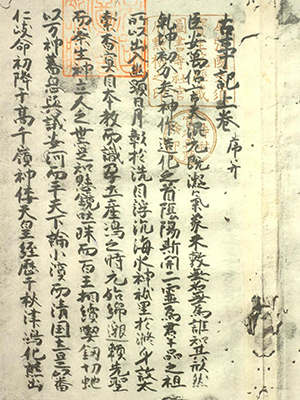 古事記上巻 序并
臣安萬侶言夫混元既凝氣象未效無名無爲誰知其形然
乾坤初分參神作造化之首陰陽斯開二靈爲群品之祖
所以出入幽顯日月彰於洗目浮沉海水神祇呈於滌身故太
素杳冥因本教而識孕土産嶋之時元始綿邈頼先聖
而察生神立人之世寔知懸鏡吐珠而百王相續喫釼切虵
以万神蕃息歟議安河而平天下論小濱而清国土是以番
仁岐命初降于高千嶺神倭天皇經歷于秋津嶋化熊出